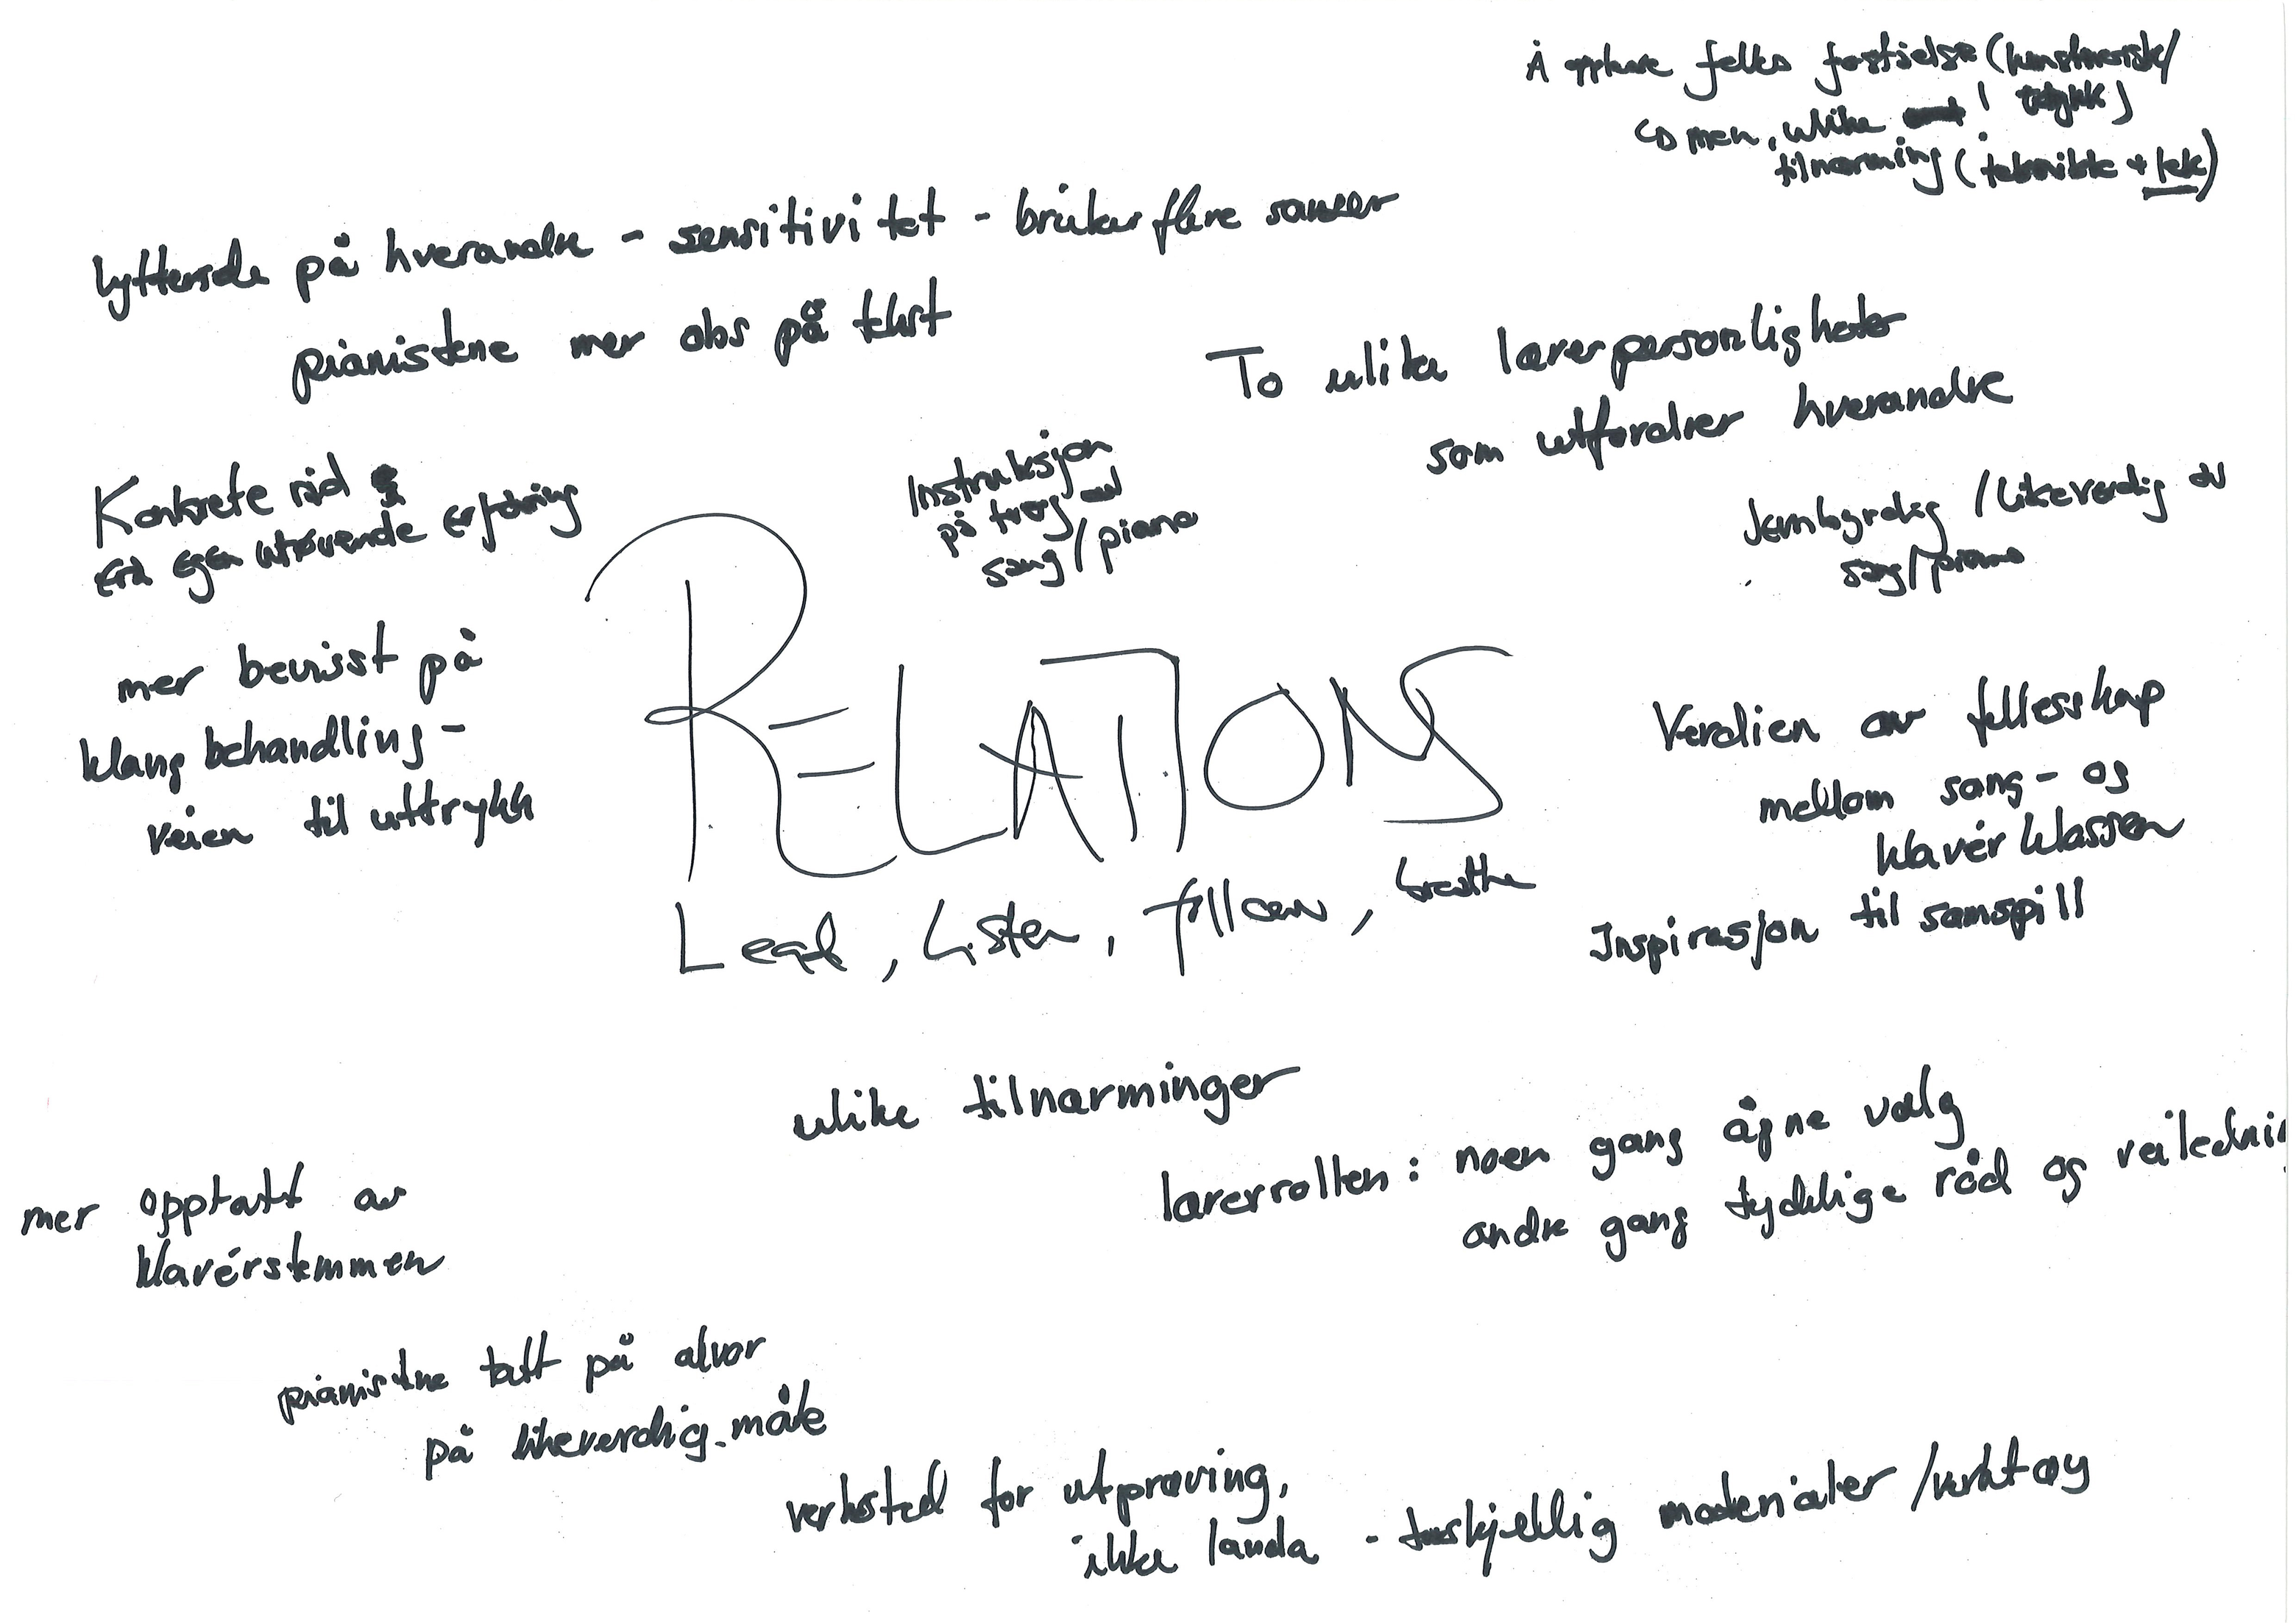 Å oppleve felles forståelse (kunstnerisk/
uttrykk)
men, ulike
tilnærming (teknikk + lek)
lyttende på hverandre - sensitivitet - bruker flere sanser
pianistene mer obs på tekst
To ulike lærerpersonligheter
som utfordrer hverandre
Konkrete råd
fra egen utøvende erfaring
Instruksjon
på tvers av
sang/piano
Jevnbyrdig/likeverdig av
sang/piano
mer bevisst på
klang behandling -
veien til uttrykk
RELATIONS
Lead, Listen, follow, breathe
Verdien av fellesskap
mellom sang- og
klavér klassen
Inspirasjon til samspill
ulike tilnærminger
lærerrollen: noen gang åpne valg
andre gang tydelige råd og veilednin
mer opptatt av
klavérstemmen
pianistene tatt på alvor
på likeverdig måte
verksted for utprøving,
ikke landa - forskjellig materialer/verktøy